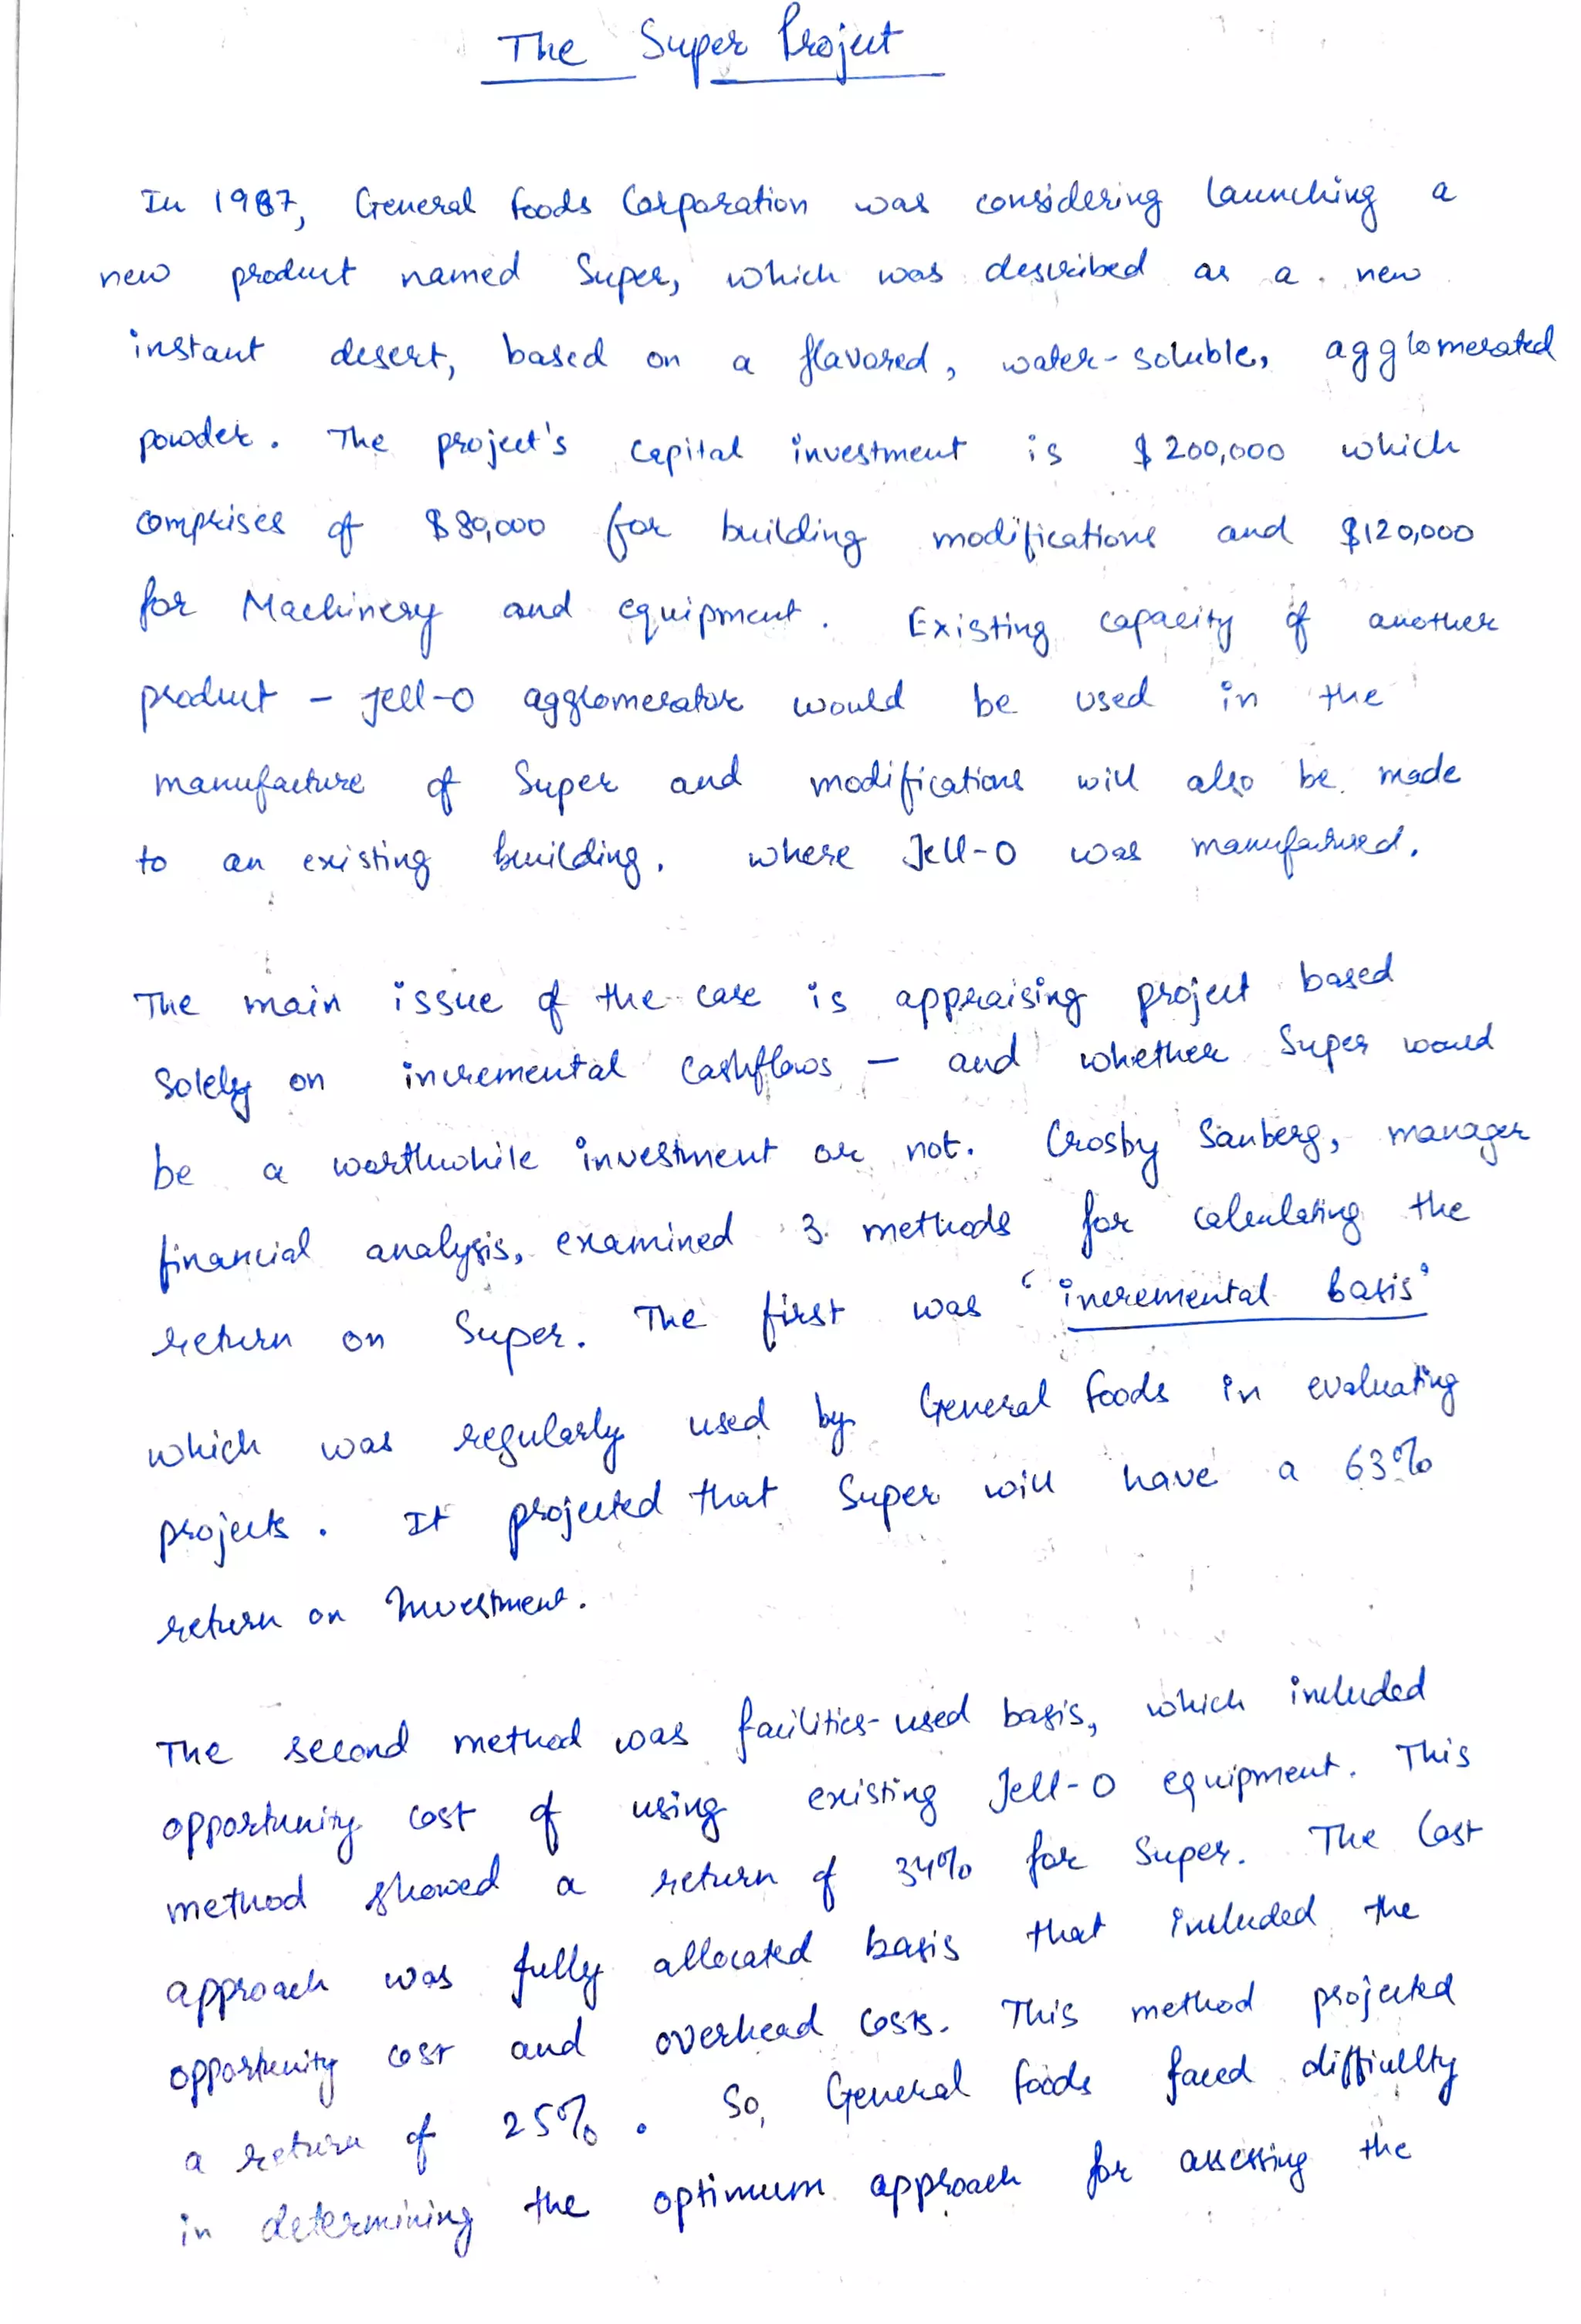 The Super Project
In 1987, General Foods Corporation was considering launching a
new product named Super, which was described as a new
instant desert, based on a flavored, water-soluble, agglomerated
powder. The project's capital investment is $200,000 which
comprises of $80,000 for building modifications and $120,000
for Machinery and equipment. Existing capacity of another
product - Jell-O agglomerator would be used in the
manufacture of Super and modifications will also be made
to an existing building, where Jell-O was manufactured.
The main issue of the case is appraising project based
solely on incremental cashflows - and whether Super would
be a worthwhile investment or not. Crosby Sanberg, manager
financial analysis, examined 3 methods for calculating the
return on Super. The first was 'incremental basis'
which was regularly used by General Foods in evaluating
projects. It projected that Super will have a 63%
return on Investment.
The second method was facilities-used basis, which included
opportunity cost of using existing Jell-O equipment. This
method showed a return of 34% for Super. The last
approach was fully allocated basis that included the
opportunity cost and overhead costs. This method projected
a return of 25%. So, General Foods faced difficulty
in determining the optimum approach for assessing the